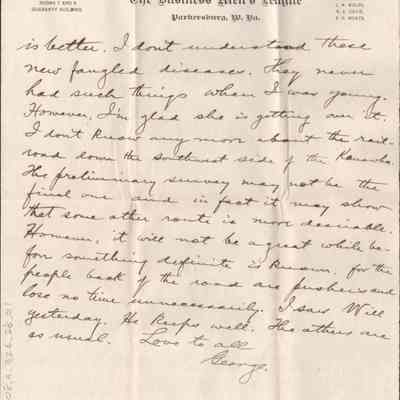 ROOMS 7 AND 8
GUARANTY BUILDING
The Business Men's League
Parkersburg, W. Va.
is better. I don't understand these
new fangled diseases. They never
had such things when I was young.
However, I'm glad she is getting over it.
I don't know any more about the rail-
road down the southwest side of the Kanawha.
The preliminary survey may not be the
final one and in fact it may show
that some other route is more desirable.
However, it will not be a great while be-
fore something definite is known, for the
people back of the road are pushers and
lose no time unnecessarily. I saw Will
yesterday. He keeps well. The others are
as usual. Love to all
George.